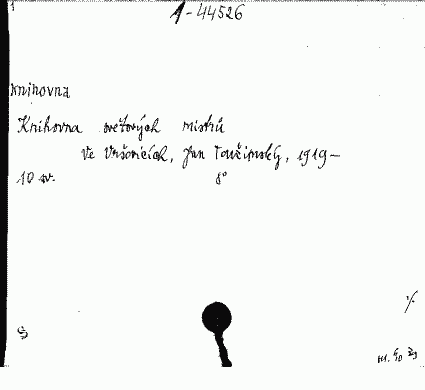 1-44526
Knihovna
Knihovna světových mistrů
Ve Vršovicích, Jan Toužimský, 1919-
10 sv. 8°
Š